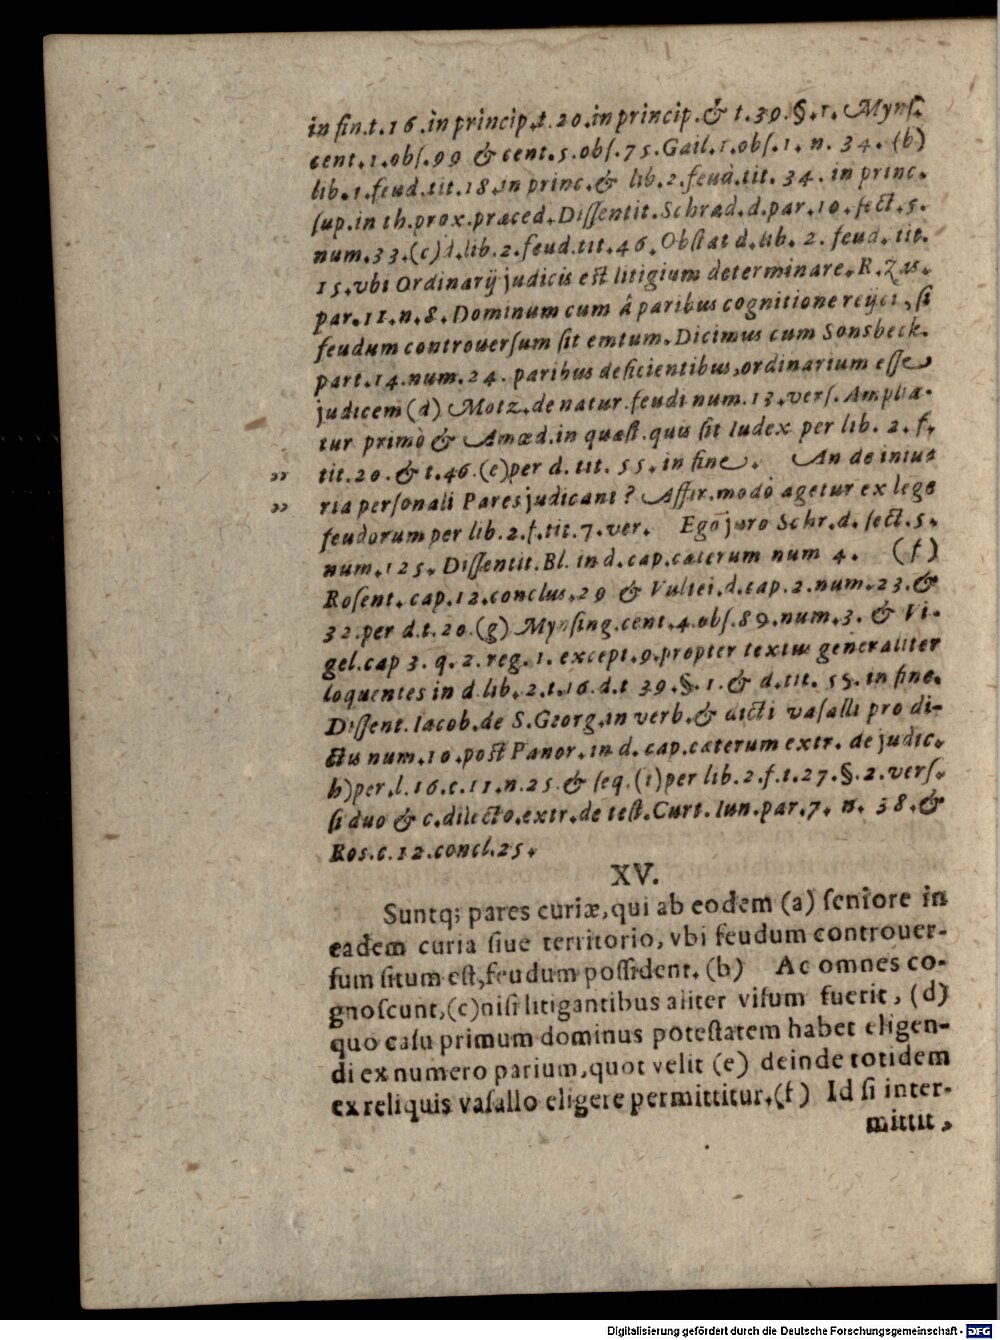 in fin.t.16.in princip.t.20.in princip.& t.39.§.1. Mynſ.
cent.1.obſ.99 & cent.5.obſ.75.Gail.1.obſ.1. n. 34. (b)
lib.1.feud.tit.18.in princ.& lib.2.feud.tit. 34. in princ.
ſup.in th.prox.præced.Diſſentit.Schrad.d.par.10.ſect.5.
num.33.(c)d.lib.2.feud.tit.46. Obſtat d.lib. 2. feud. tit.
15.vbi Ordinarij judicis eſt litigium determinare.R.Zas.
par.11.n.8.Dominum cum á paribus cognitione reijci, ſi
feudum controuerſum ſit emtum.Dicimus cum Sonsbeck.
part.14.num.24. paribus deficientibus,ordinarium eſſe
judicem(d) Motz.de natur.feudi num.13.verſ.Amplia-
tur primò & Amæd.in quæſt.quis ſit Iudex per lib. 2. f.
„ tit.20.& t.46.(e)per d. tit. 55.in fine. An de iniu-
„ ria perſonali Pares judicant? Affir.modò agetur ex lege
feudorum per lib.2.f.tit.7.ver. Ego juro Schr.d. ſect.5.
num.125.Diſſentit.Bl. in d.cap.cæterum num 4. (f)
Roſent.cap.12.conclus.29 & Vultei.d.cap.2.num.23.&
32.per d.t.20.(g) Mynſing.cent.4.obſ.89.num.3. & Vi-
gel.cap 3. q. 2. reg. 1. except.9.propter textus generaliter
loquentes in d.lib.2.t.16.d.t 39.§.1.& d.tit. 55.in fine.
Diſſent.Iacob.de S.Georg.in verb.& dicti vaſalli pro di-
ctus num.10.poſt Panor.in d. cap.cæterum extr. de judic.
h)per.l.16.c.11.n.25.& ſeq.(i)per lib.2.f.t.27.§.2.verſ.
ſi duo & c.dilecto.extr.de teſt.Curt.Iun.par.7. n. 38.&
Ros.c.12.concl.25.
XV.
Suntq; pares curiæ,qui ab eodem (a) ſeniore in
eadem curia ſiue territorio, vbi feudum controuer-
ſum ſitum eſt,feudum poſſident. (b) Ac omnes co-
gnoſcunt,(c)niſi litigantibus aliter viſum fuerit, (d)
quo caſu primum dominus poteſtatem habet eligen-
di ex numero parium,quot velit (e) deinde totidem
ex reliquis vaſallo eligere permittitur.(f) Id ſi inter-
mittit,
Digitalisierung gefördert durch die Deutsche Forschungsgemeinschaft - DFG